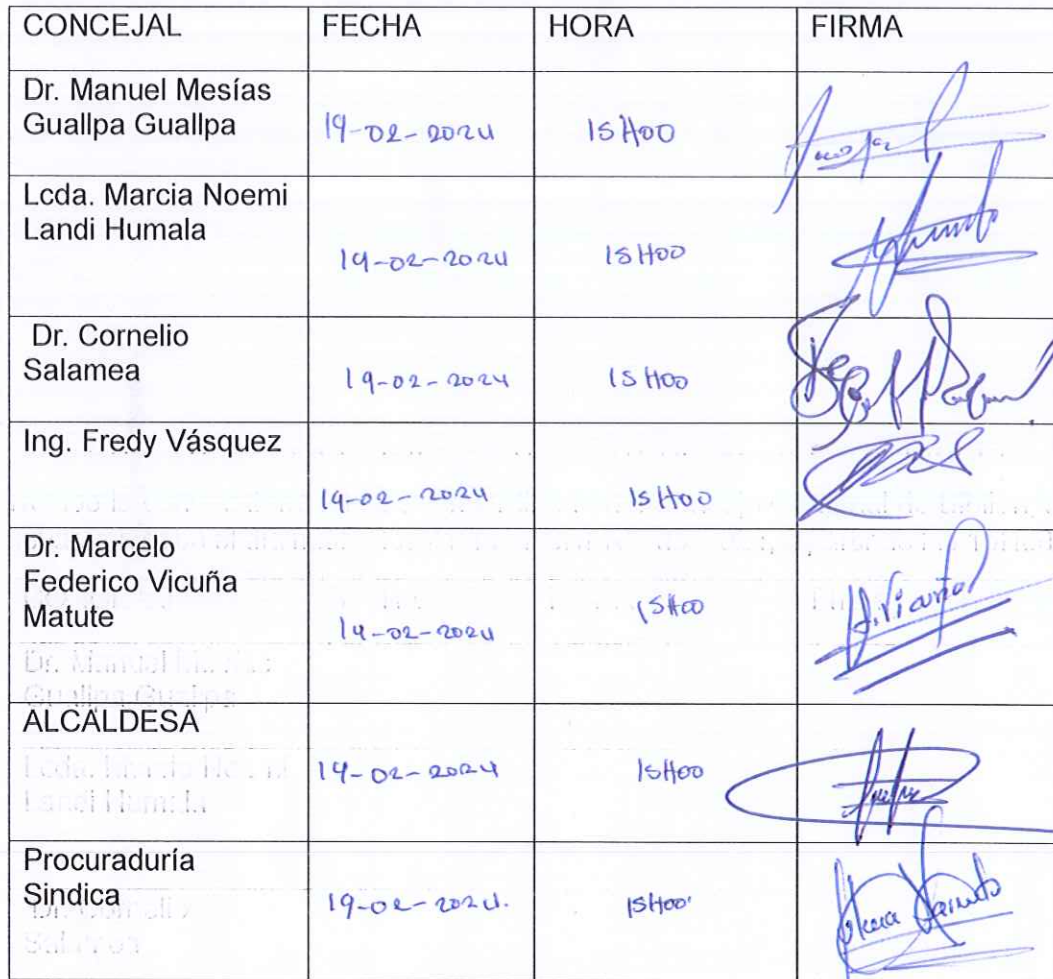 CONCEJAL FECHA HORA FIRMA
Dr. Manuel Mesías
Guallpa Guallpa 19-02-2024 15H00
Lcda. Marcia Noemi
Landi Humala 19-02-2024 15H00
Dr. Cornelio
Salamea 19-02-2024 15H00
Ing. Fredy Vásquez
19-02-2024 15H00
Dr. Marcelo
Federico Vicuña 15H00
Matute 19-02-2024
ALCALDESA
19-02-2024 15H00
Procuraduría
Sindica 19-02-2024. 15H00